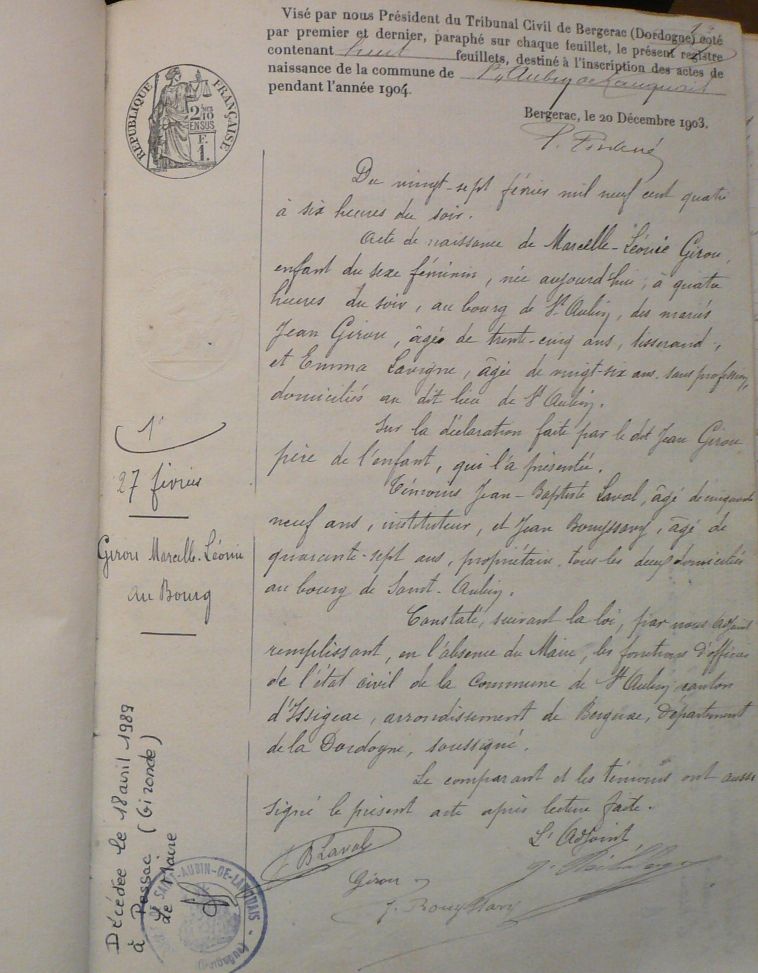 Visé par nous Président du Tribunal Civil de Bergerac (Dordogne) coté
par premier et dernier, paraphé sur chaque feuillet, le présent registre
contenant huit feuillets, destiné à l'inscription des actes de
naissance de la commune de St Aubin de Lanquais
pendant l'année 1904.
Bergerac, le 20 Décembre 1903.
RÉPUBLIQUE FRANÇAISE
2/10
EN SUS
F.
1.
Du vingt-sept février mil neuf cent quatre
à six heures du soir.
Acte de naissance de Marcelle-Léonie Girou,
enfant du sexe féminin, née aujourd'hui, à quatre
heures du soir, au bourg de St Aubin, des mariés
Jean Girou, âgé de trente-cinq ans, tisserand,
et Emma Lavigne, âgée de vingt-six ans sans profession,
domiciliés au dit lieu de St Aubin.
Sur la déclaration faite par le dit Jean Girou
père de l'enfant, qui l'a présentée.
Témoins Jean-Baptiste Laval, âgé de cinquante
neuf ans, instituteur, et Jean Bouyssavy, âgé de
quarante-sept ans, propriétaire, tous les deux domiciliés
au bourg de Saint-Aubin.
Constaté, suivant la loi, par nous adjoint
remplissant, en l'absence du Maire, les fonctions d'officier
de l'état civil de la commune de St Aubin, canton
d'Issigeac, arrondissement de Bergerac, département
de la Dordogne, soussigné.
Le comparant et les témoins ont aussi
signé le présent acte après lecture faite.
L'Adjoint
B Laval
Girou
J. Bouyssavy
1
27 février
Girou Marcelle-Léonie
au Bourg
Décédée le 18 avril 1989
à Pessac (Gironde)
Le Maire
SAINT-AUBIN-DE-LANQUAIS